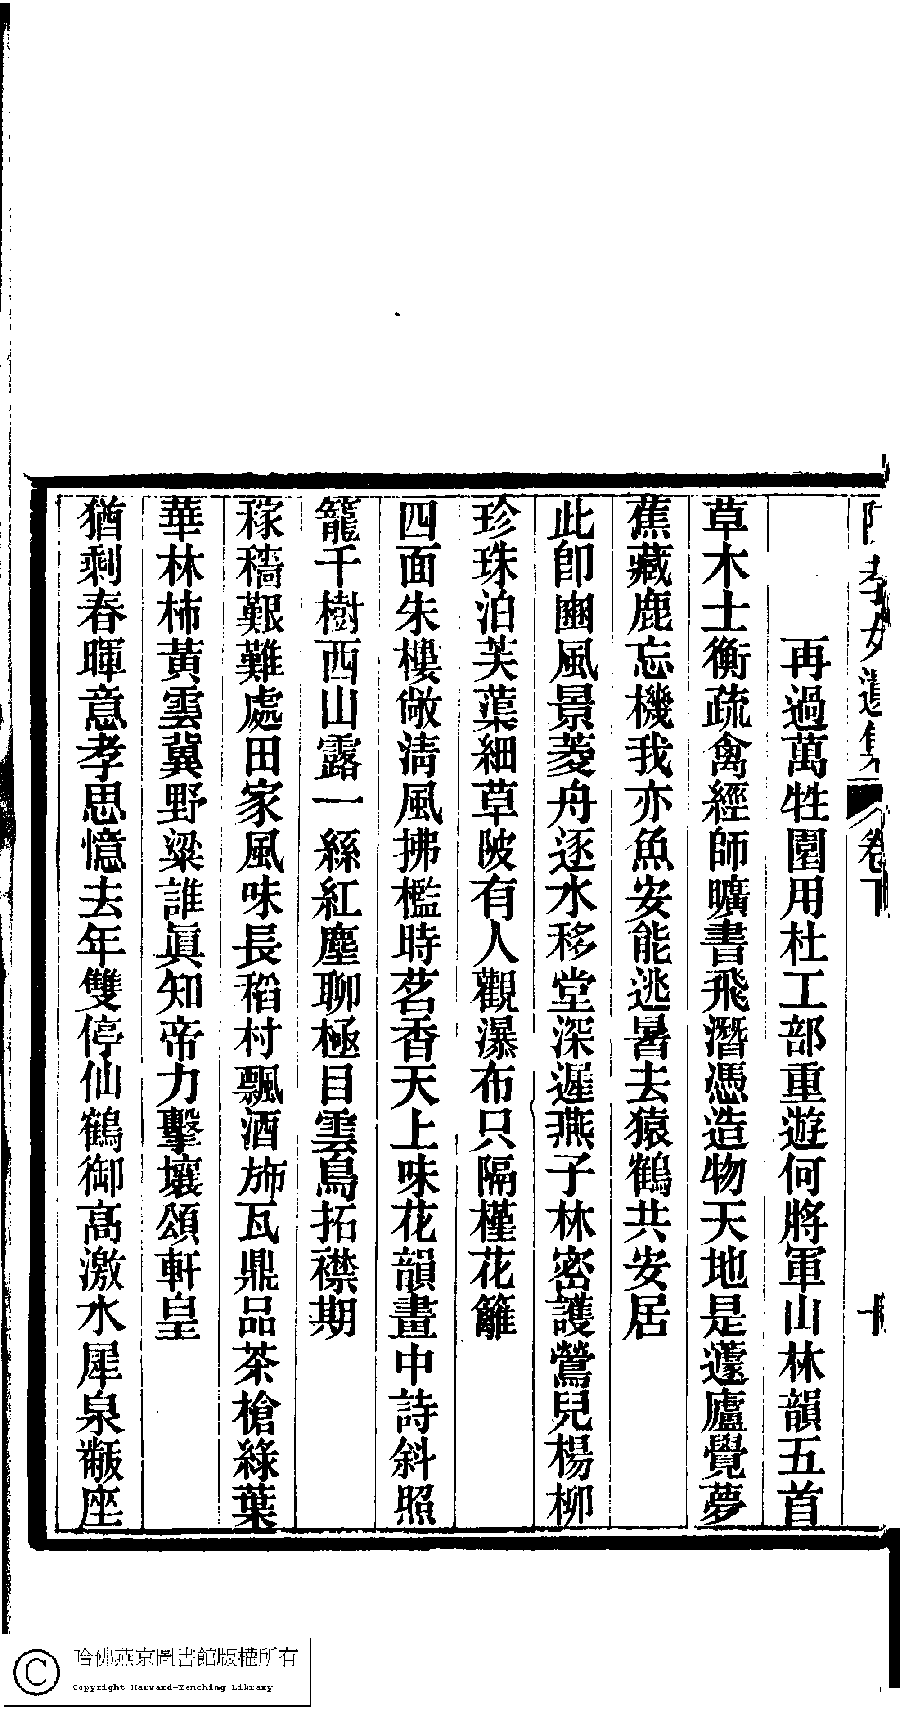 孝女遺集 卷下
再過萬牲園用杜工部重遊何將軍山林韻五首
草木士衡疏禽經師曠書飛潛憑造物天地是蘧廬覺夢
蕉藏鹿忘機我亦魚安能逃暑去猿鶴共安居
此卽豳風景菱舟逐水移堂深遲燕子林密護鶯兒楊柳
珍珠泊芙蕖細草陂有人觀瀑布只隔槿花籬
四面朱樓敞淸風拂檻時茗香天上味花韻畫中詩斜照
籠千樹西山露一絲紅塵聊極目雲鳥拓襟期
稼穡艱難處田家風味長稻村飄酒旆瓦鼎品茶槍綠葉
華林柿黃雲冀野粱誰眞知帝力擊壤頌軒皇
猶剩春暉意孝思憶去年雙停仙鶴御高激水犀泉黻座
哈佛燕京圖書館版權所有
Copyright Harvard-Yenching Library